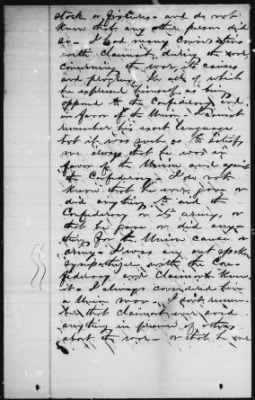 stock or fixtures - and do not
know that any other person did
so - I had many conversations
with claimant, during the war,
concerning the war, its causes
and progress. In all of which
he expressed himself as being
opposed to the Confederacy and
in favor of the Union - I cannot
remember his exact language
but it was such as to satisfy
me always that he was in
favor of the Union and against
the Confederacy - I do not
know that he ever gave or
did anything to aid the
Confederacy or its army, or
that he gave or did any-
thing for the Union cause or
army - I was an out spoken
sympathizer with the Con-
federacy and Claimant knew
it - I always considered him
a Union man - I don't remem-
ber that claimant ever said
anything in presence of others
about the war - or that he ever